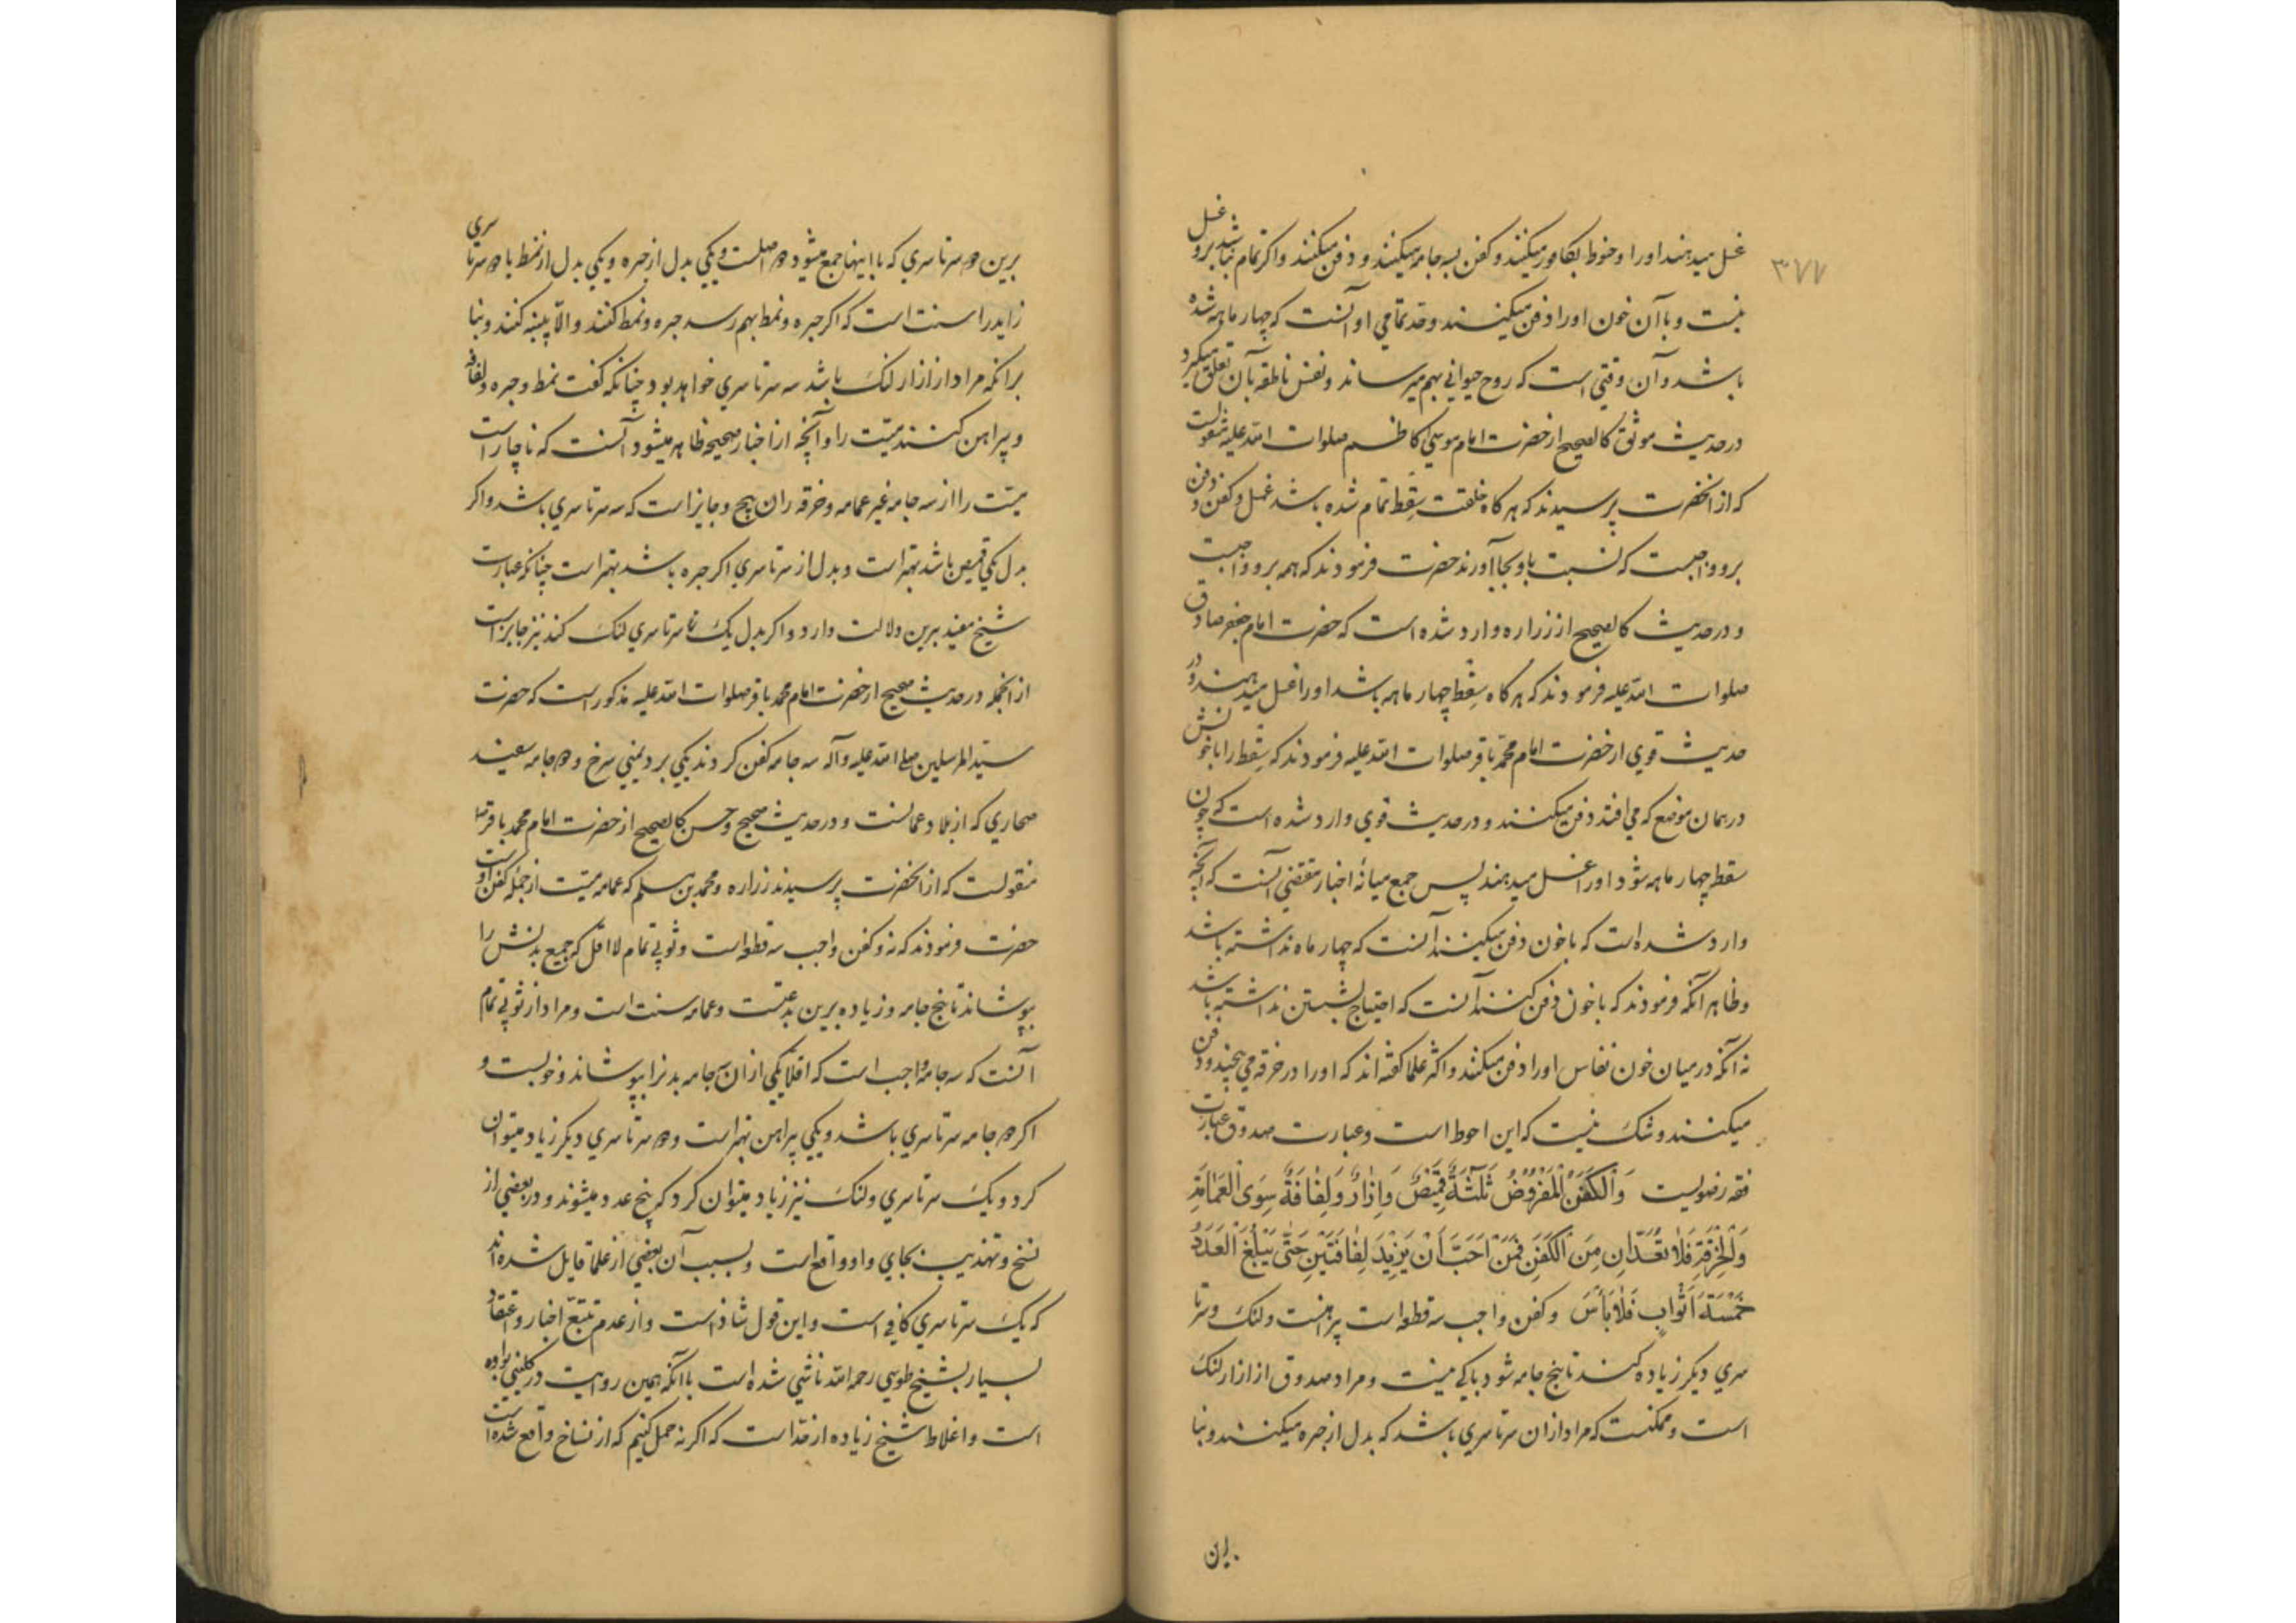 ۳۷۷
غسل میدهند او را و حنوط بکافور میکنند و کفن بسه جامه میکنند و دفن میکنند و اکر تمام نباشد برو غسل
نیست و با آن خون او را دفن میکنند و حد تمامی او آنست که چهار ماهه شده
باشد و آن وقتی است که روح حیوانی بهم میرساند و نفس ناطقه بآن تعلق میکیرد
در حدیث موثق کالصحیح از حضرت امام موسی کاظم صلوات الله علیه منقولست
که از انحضرت پرسیدند که هر کاه خلقت سِقط تمام شده باشد غسل و کفن و دفن
برو واجبست که نسبت باو بجا آورند حضرت فرمودند که همه برو واجبست
و در حدیث کالصحیح از زراره وارد شده است که حضرت امام جعفر صادق
صلوات الله علیه فرمودند که هر کاه سِقط چهار ماهه باشد او را غسل میدهند و در
حدیث قوی از حضرت امام محمّد باقر صلوات الله علیه فرمودند که سِقط را با خونش
در همان موضع که می افتد دفن میکنند و در حدیث قوی وارد شده است که چون
سقط چهار ماهه شود او را غسل میدهند پس جمع میانهٔ اخبار مقتضی آنست که آنچه
وارد شده است که با خون دفن میکنند آنست که چهار ماه نداشته باشد
و ظاهر آنکه فرمودند که با خون دفن کنند آنست که احتیاج بشستن نداشته باشد
نه آنکه در میان خون نفاس او را دفن میکنند و اکثر علما کفته اند که او را در خرقه می پیچند و دفن
میکنند و شک نیست که این احوط است و عبارت صدوق عبارت
فقه رضویست وَالکَفَنُ المَفرُوضُ ثَلٰثَةٌ قَمِیصٌ وَاِزَارٌ وَلِفَافَةٌ سِوَی العَمَامَةِ
وَالخِرقَةِ فَلَا تُعَدَّانِ مِنَ الکَفَنِ فَمَن اَحَبَّ اَن یَزِیدَ لِفَافَتَینِ حَتّٰی یَبلُغَ العَدَدُ
خَمسَةَ اَثوَابٍ فَلَا بَأسَ و کفن واجب سه قطعه است پیراهنست و لنک و سرتا
سری دیکر زیاده کنند تا پنج جامه شود باکی نیست و مراد صدوق از ازار لنک
است و ممکنست که مراد از ان سرتاسری باشد که بدل از حبره میکنند و بنا
برین
برین دو سرتاسری که با اینها جمع میشود دو اصلست و یکی بدل از حبره و یکی بدل از نمط یا دو سرتا سری
زاید را سنت است که اکر حبره و نمط بهم رسد حبره و نمط کنند و الّا پنبه کنند و بنا
برانکه مراد از ازار لنک باشد سه سرتاسری خواهد بود چنانکه کفت نمط و حبره و لفافه
و پیراهن کنند میّت را و آنچه از اخبار صحیحه ظاهر میشود آنست که ناچار است
میّت را از سه جامه غیر عمامه و خرقه ران پیچ و جایز است که سه سرتاسری باشد و اکر
بدل یکی قمیص باشد بهتر است و بدل از سرتاسری اکر حبره باشد بهتر است چنانکه عبارت
شیخ مفید برین دلالت دارد و اکر بدل یک سرتاسری لنک کند نیز جایز است
از انجمله در حدیث صحیح از حضرت امام محمد باقر صلوات الله علیه مذکور است که حضرت
سیّد المرسلین صلی الله علیه و آله سه جامه کفن کردند یکی برد یمنی سرخ و دو جامه سفید
صحاری که از بلاد عمانست و در حدیث صحیح و حسن کالصحیح از حضرت امام محمد باقر
منقولست که از انحضرت پرسیدند زراره و محمد بن مسلم که عمامه میّت از جملهٔ کفن اوست
حضرت فرمودند که نه و کفن واجب سه قطعه است و ثوبی تمام لا اقل که جمیع بدنش را
بپوشاند تا پنج جامه و زیاده برین بدعتست و عمامه سنت است و مراد از ثوبی تمام
آنست که سه جامه واجب است که اقلا یکی از ان سه جامه بدنرا بپوشاند و خوبست و
اکر دو جامه سرتاسری باشد و یکی پیراهن بهتر است و دو سرتاسری دیکر زیاد میتوان
کرد و یک سرتاسری و لنک نیز زیاد میتوان کرد که پنج عدد میشوند و در بعضی از
نسخ و تهذیب بجای واو او واقع است و بسبب آن بعضی از علما قایل شده اند
که یک سرتاسری کافی است و این قول شاذ است و از عدم تتبّع اخبار و اعتقاد
بسیار بشیخ طوسی رحمه الله ناشی شده است با آنکه همین روایت در کلینی بواو
است و اغلاط شیخ زیاده از حد است که اکر نه حمل کنیم که از نساخ واقع شده است